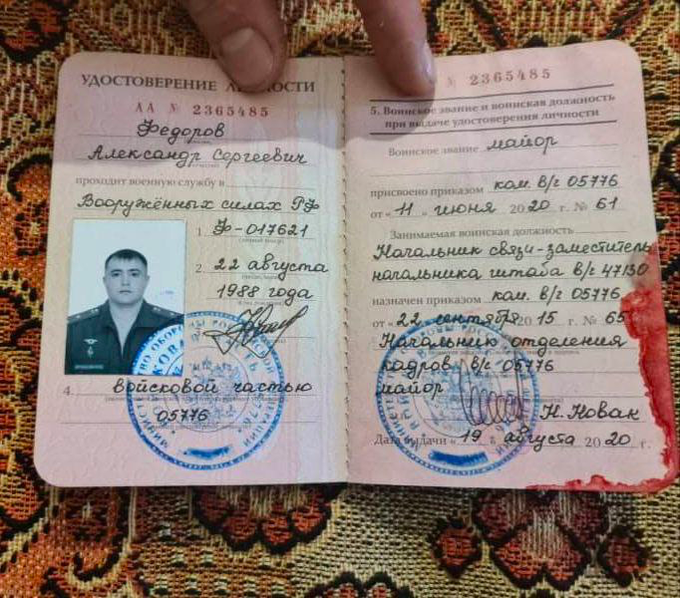 УДОСТОВЕРЕНИЕ ЛИЧНОСТИ
АА № 2365485
Федоров
Александр Сергеевич
проходит военную службу в
Вооружённых силах РФ
1. Ф-017621
2. 22 августа
1988 года
3.
4. войсковой частью
05776
№ 2365485
5. Воинское звание и воинская должность
при выдаче удостоверения личности
Воинское звание майор
присвоено приказом ком. в/ч 05776
от "11" июня 2020 г. № 61
Занимаемая воинская должность
Начальник связи-заместитель
начальника штаба в/ч 47130
назначен приказом ком. в/ч 05776
от "22" сентября 2015 г. № 65
Начальник отделения
кадров в/ч 05776
майор
Н. Новак
Дата выдачи "19" августа 2020 г.